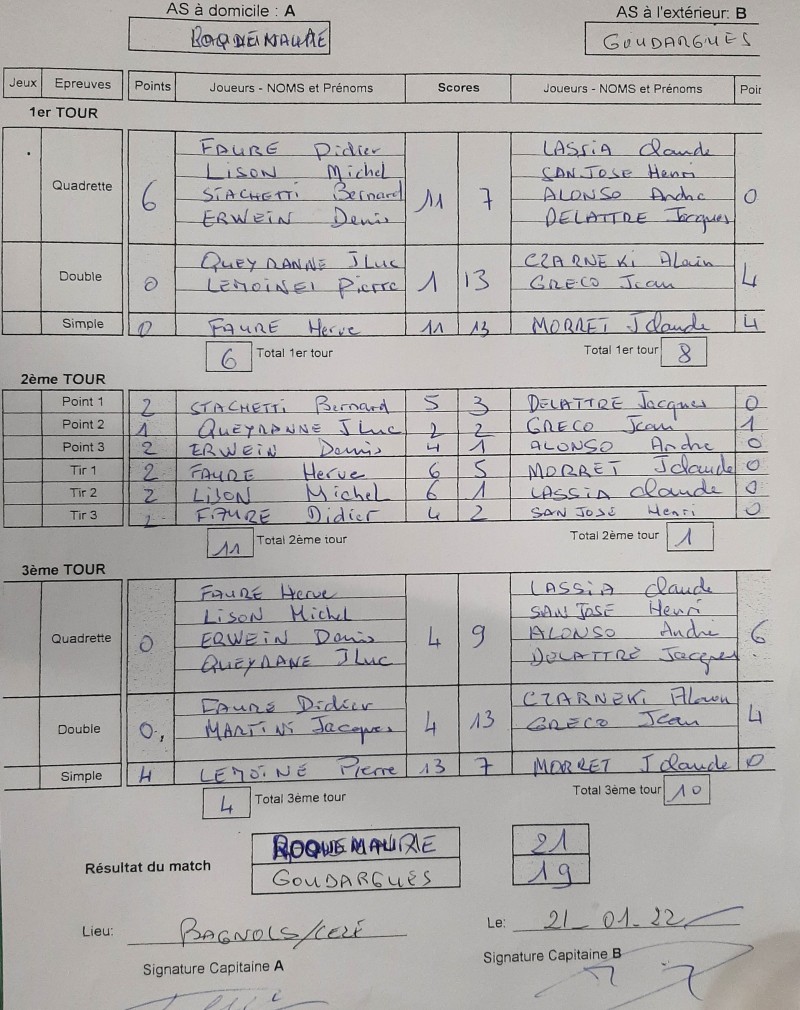 AS à domicile : A AS à l'extérieur: B
ROQUEMAURE GOUDARGUES
Jeux Epreuves Points Joueurs - NOMS et Prénoms Scores Joueurs - NOMS et Prénoms Poir
1er TOUR
FAURE Didier LASSIA Claude
LISON Michel SAN JOSE Henri
Quadrette 6 STACHETTI Bernard 11 7 ALONSO Andre 0
ERWEIN Denis DELATTRE Jacques
QUEYRANNE JLuc CZARNEKI Alain
Double 0 LEMOINE Pierre 1 13 GRECO Jean 4
Simple 0 FAURE Herve 11 13 MORRET JClaude 4
6 Total 1er tour Total 1er tour 8
2ème TOUR
Point 1 2 STACHETTI Bernard 5 3 DELATTRE Jacques 0
Point 2 1 QUEYRANNE JLuc 2 2 GRECO Jean 1
Point 3 2 ERWEIN Denis 4 1 ALONSO Andre 0
Tir 1 2 FAURE Herve 6 5 MORRET JClaude 0
Tir 2 2 LISON Michel 6 1 LASSIA Claude 0
Tir 3 2 FAURE Didier 4 2 SAN JOSE Henri 0
11 Total 2ème tour Total 2ème tour 1
3ème TOUR
FAURE Herve LASSIA Claude
LISON Michel SAN JOSE Henri
Quadrette 0 ERWEIN Denis 4 9 ALONSO Andre 6
QUEYRANE JLuc DELATTRE Jacques
FAURE Didier CZARNEKI Alain
Double 0 MARTINI Jacques 4 13 GRECO Jean 4
Simple 4 LEMOINE Pierre 13 7 MORRET JClaude 0
4 Total 3ème tour Total 3ème tour 10
Résultat du match ROQUEMAURE 21
GOUDARGUES 19
Lieu: BAGNOLS/CEZE Le: 21_01_22
Signature Capitaine A Signature Capitaine B